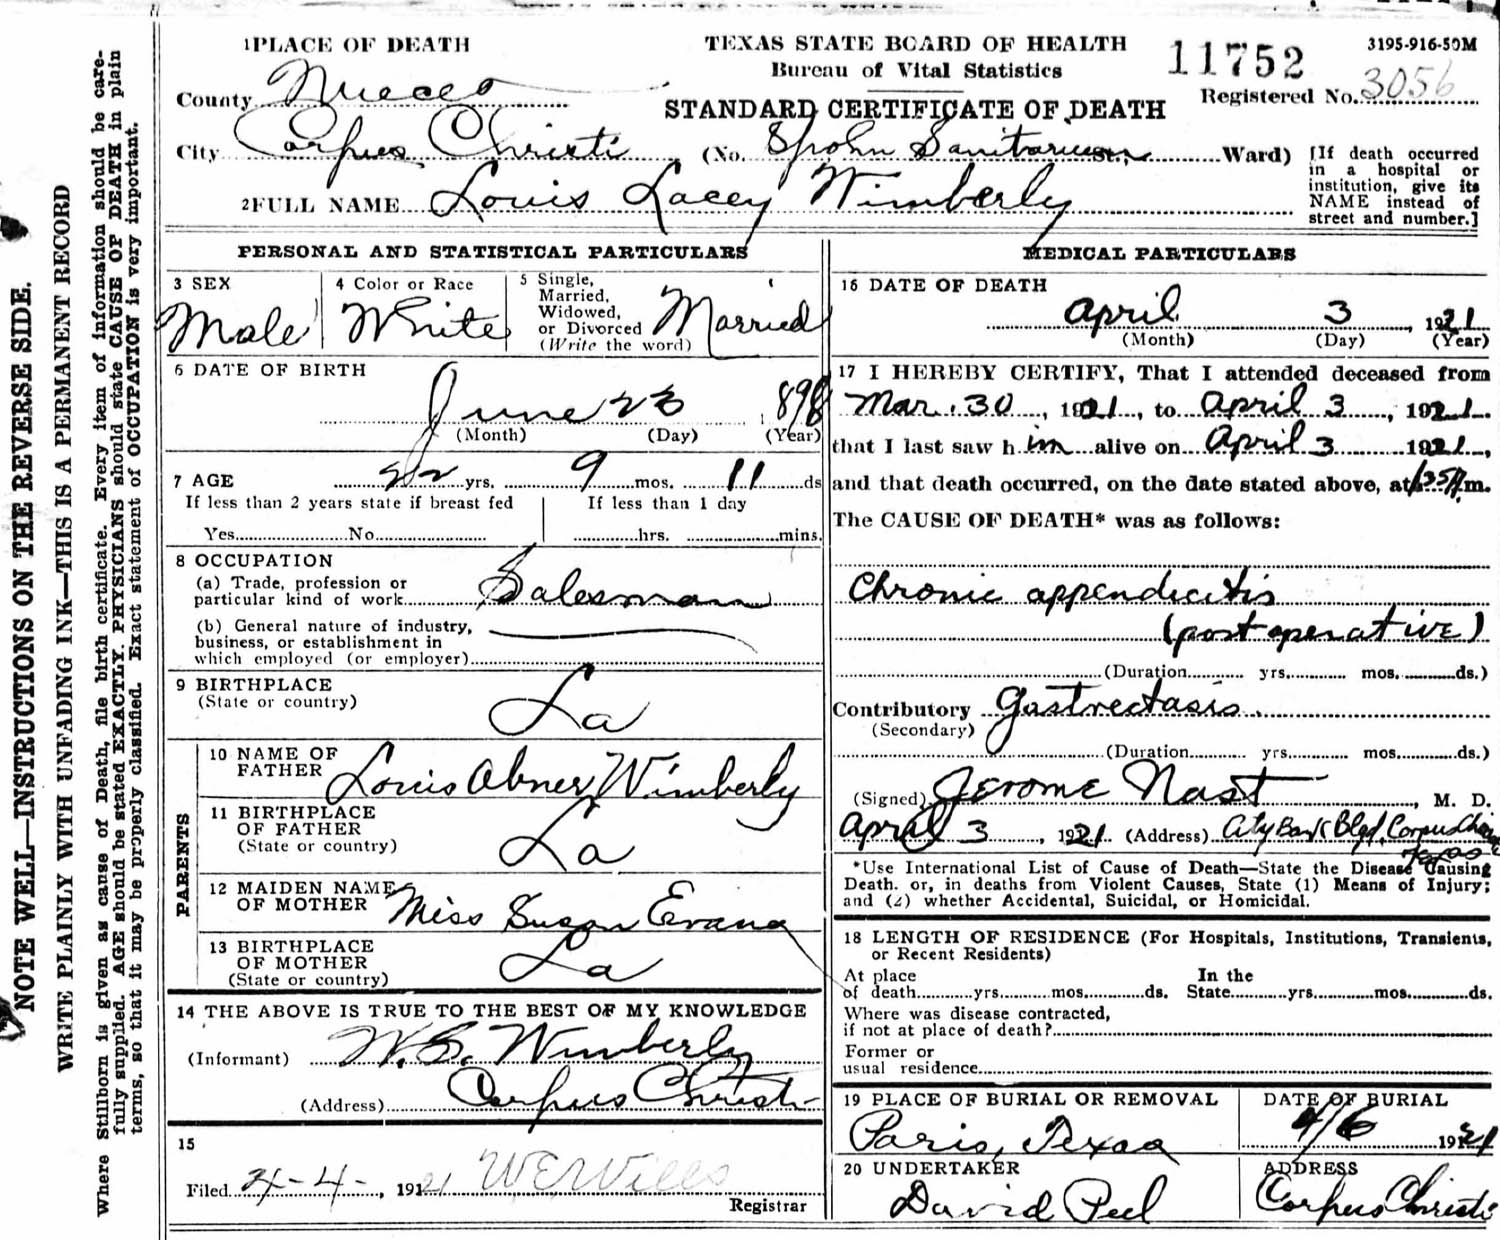 TEXAS STATE BOARD OF HEALTH
Bureau of Vital Statistics
STANDARD CERTIFICATE OF DEATH
11752
3195-916-50M
Registered No. 3056
1 PLACE OF DEATH
County Nueces
City Corpus Christi (No. Spohn Sanitarium St., Ward)
[If death occurred
in a hospital or
institution, give its
NAME instead of
street and number.]
2 FULL NAME Louis Lacey Wimberly
PERSONAL AND STATISTICAL PARTICULARS
3 SEX
Male
4 Color or Race
White
5 Single,
Married,
Widowed,
or Divorced
(Write the word)
Married
6 DATE OF BIRTH
June 23, 1898
(Month) (Day) (Year)
7 AGE 22 yrs. 9 mos. 11 ds
If less than 2 years state if breast fed
Yes No
If less than 1 day
hrs. mins.
8 OCCUPATION
(a) Trade, profession or
particular kind of work Salesman
(b) General nature of industry,
business, or establishment in
which employed (or employer)
9 BIRTHPLACE
(State or country)
La
PARENTS
10 NAME OF
FATHER Louis Abner Wimberly
11 BIRTHPLACE
OF FATHER
(State or country)
La
12 MAIDEN NAME
OF MOTHER Miss Susan Evans
13 BIRTHPLACE
OF MOTHER
(State or country)
La
14 THE ABOVE IS TRUE TO THE BEST OF MY KNOWLEDGE
(Informant) Wimberly
(Address) Corpus Christi
15
Filed 4-4-, 1921 W E Wills
Registrar
MEDICAL PARTICULARS
16 DATE OF DEATH
April 3, 1921
(Month) (Day) (Year)
17 I HEREBY CERTIFY, That I attended deceased from
Mar. 30, 1921, to April 3, 1921.
that I last saw h im alive on April 3 1921,
and that death occurred, on the date stated above, at m.
The CAUSE OF DEATH* was as follows:
Chronic appendicitis
(post operative)
(Duration yrs. mos. ds.)
Contributory Gastrectasis.
(Secondary)
(Duration yrs. mos. ds.)
(Signed) Jerome Nast, M. D.
April 3, 1921 (Address) City Bank Bldg, Corpus Christi
Texas
*Use International List of Cause of Death—State the Disease Causing
Death. or, in deaths from Violent Causes, State (1) Means of Injury;
and (2) whether Accidental, Suicidal, or Homicidal.
18 LENGTH OF RESIDENCE (For Hospitals, Institutions, Transients,
or Recent Residents)
At place
of death yrs. mos. ds.
In the
State yrs. mos. ds.
Where was disease contracted,
if not at place of death?
Former or
usual residence
19 PLACE OF BURIAL OR REMOVAL
Paris, Texas
DATE OF BURIAL
4/6 1921
20 UNDERTAKER
David Peel
ADDRESS
Corpus Christi
NOTE WELL—INSTRUCTIONS ON THE REVERSE SIDE.
WRITE PLAINLY WITH UNFADING INK—THIS IS A PERMANENT RECORD
Where Stillborn is given as cause of Death, file birth certificate. Every item of information should be care-
fully supplied. AGE should be stated EXACTLY. PHYSICIANS should state CAUSE OF DEATH in plain
terms, so that it may be properly classified. Exact statement of OCCUPATION is very important.